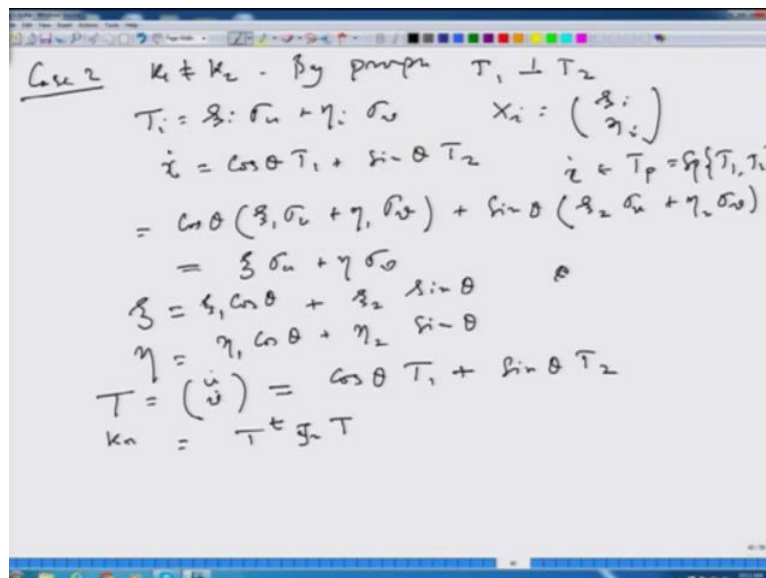 Case 2 κ₁ ≠ κ₂ . By T₁ ⊥ T₂
Tᵢ = ξᵢ σᵤ + ηᵢ σᵥ Xᵢ = (ξᵢ ηᵢ)
ẋ = cos θ T₁ + sin θ T₂ ẋ ∈ Tₚ = Sp{T₁, T₂
= cos θ (ξ₁ σᵤ + η₁ σᵥ) + sin θ (ξ₂ σᵤ + η₂ σᵥ)
= ξ σᵤ + η σᵥ
ξ = ξ₁ cos θ + ξ₂ sin θ
η = η₁ cos θ + η₂ sin θ
T = (u̇ v̇) = cos θ T₁ + sin θ T₂
κₙ = Tᵗ T